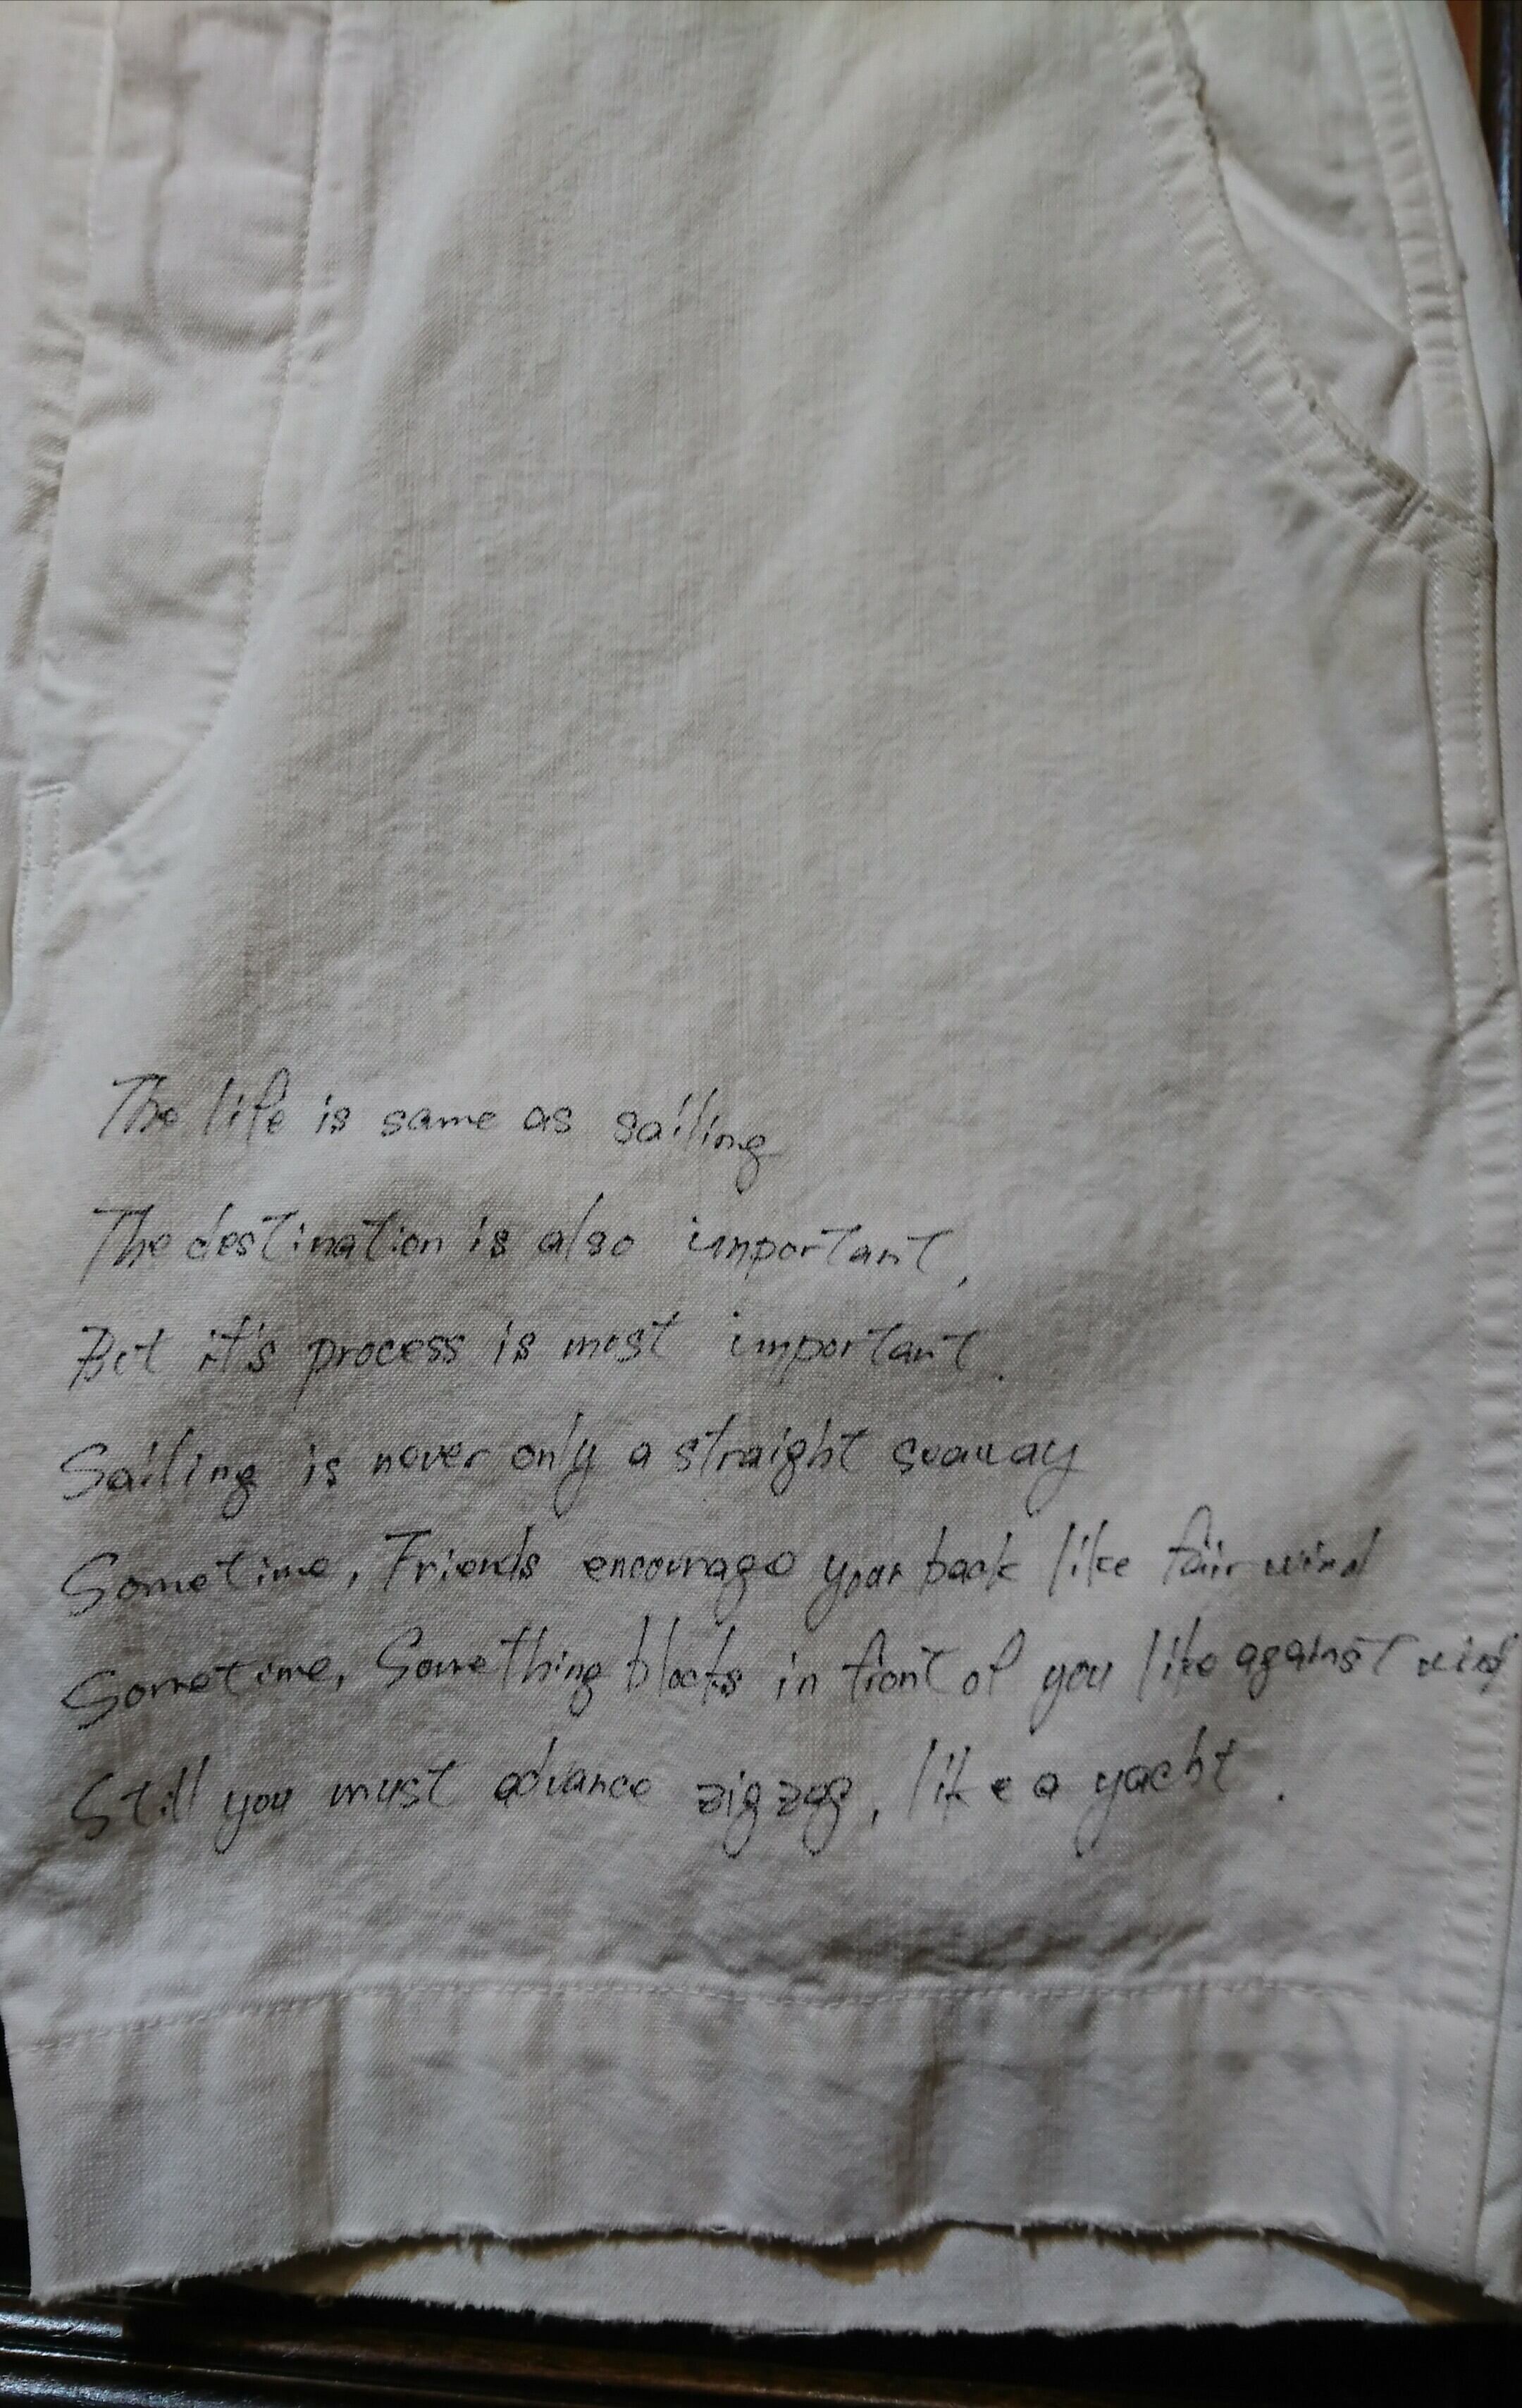 The life is same as sailing
The destination is also important,
But it's process is most important.
Sailing is never only a straight seaway
Sometime, Friends encourage your back like fair wind
Sometime, Something blocks in front of you like against wind
Still you must advance zigzag, like a yacht.